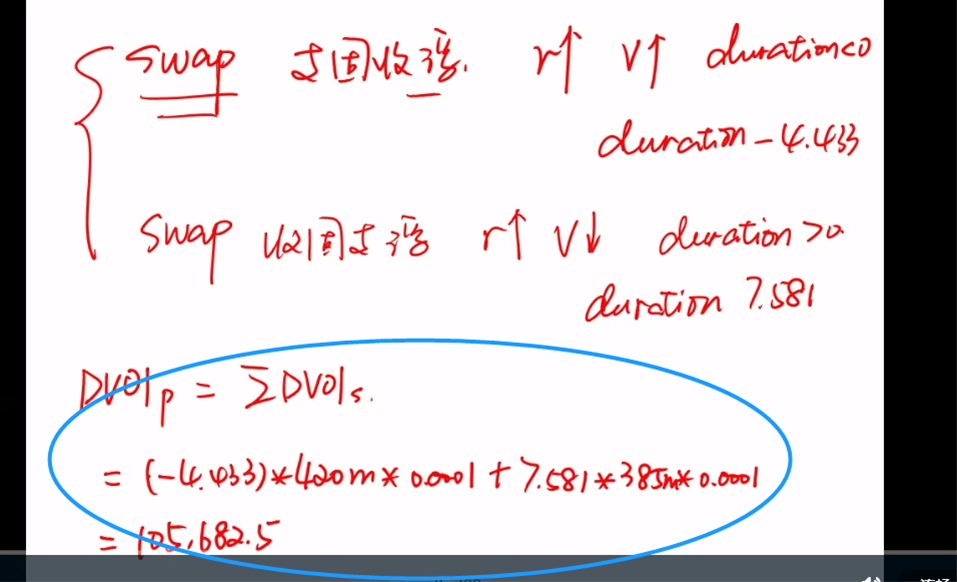 swap 支固收浮. r↑ V↑ duration<0
duration -4.433
swap 收固支浮 r↑ V↓ duration>0
duration 7.581
DV01p = ΣDV01s.
= (-4.433)*420m*0.0001+7.581*385m*0.0001
= 105,682.5